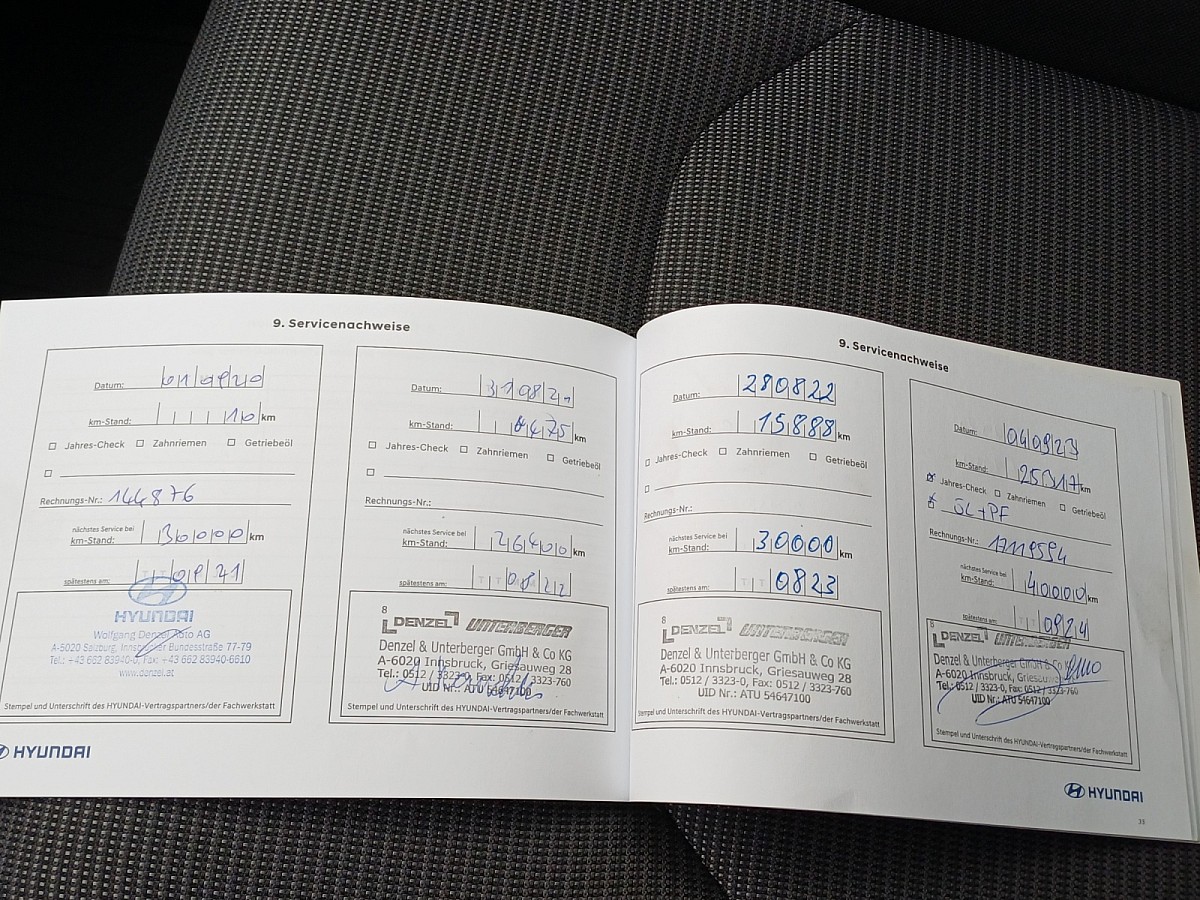 9. Servicenachweise
Datum: 010920
km-Stand: 10 km
Jahres-Check Zahnriemen Getriebeöl
Rechnungs-Nr.: 144876
nächstes Service bei
km-Stand: 30000 km
spätestens am: TT 0921
HYUNDAI
Wolfgang Denzel Auto AG
A-5020 Salzburg, Innsbrucker Bundesstraße 77-79
Tel.: +43 662 83940-0, Fax: +43 662 83940-6610
www.denzel.at
Stempel und Unterschrift des HYUNDAI-Vertragspartners/der Fachwerkstatt
Datum: 310821
km-Stand: 8475 km
Jahres-Check Zahnriemen Getriebeöl
Rechnungs-Nr.:
nächstes Service bei
km-Stand: 26400 km
spätestens am: TT 0822
8
DENZEL UNTERBERGER
Denzel & Unterberger GmbH & Co KG
A-6020 Innsbruck, Griesauweg 28
Tel.: 0512 / 3323-0, Fax: 0512 / 3323-760
UID Nr.: ATU 54647100
Stempel und Unterschrift des HYUNDAI-Vertragspartners/der Fachwerkstatt
HYUNDAI
9. Servicenachweise
Datum: 280822
km-Stand: 15888 km
Jahres-Check Zahnriemen Getriebeöl
Rechnungs-Nr.:
nächstes Service bei
km-Stand: 30000 km
spätestens am: TT 0823
8
DENZEL UNTERBERGER
Denzel & Unterberger GmbH & Co KG
A-6020 Innsbruck, Griesauweg 28
Tel.: 0512 / 3323-0, Fax: 0512 / 3323-760
UID Nr.: ATU 54647100
Stempel und Unterschrift des HYUNDAI-Vertragspartners/der Fachwerkstatt
Datum: 040923
km-Stand: 25317 km
Jahres-Check Zahnriemen Getriebeöl
ÖL+PF
Rechnungs-Nr.: 17119594
nächstes Service bei
km-Stand: 40000 km
spätestens am: TT 0924
8
DENZEL UNTERBERGER
Denzel & Unterberger GmbH & Co KG
A-6020 Innsbruck, Griesauweg
Tel.: 0512 / 3323-0, Fax: 0512 / 3323-760
UID Nr.: ATU 54647100
Stempel und Unterschrift des HYUNDAI-Vertragspartners/der Fachwerkstatt
HYUNDAI
33